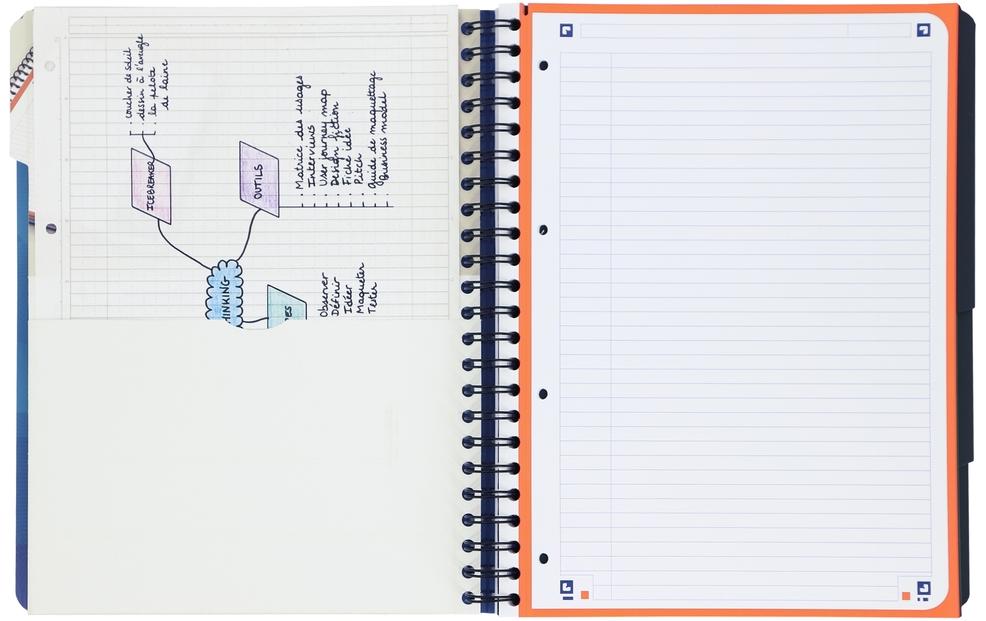 ICEBREAKER
. coucher de soleil
. dessin à l'aveugle
. la pelote
de laine
OUTILS
. Matrice des usages
. Interviews
. User journey map
. Design fiction
. Fiche idée
. Pitch
. Guide de maquettage
. Business model
HINKING
ES
Observer
Définir
Idéer
Maqueter
Tester